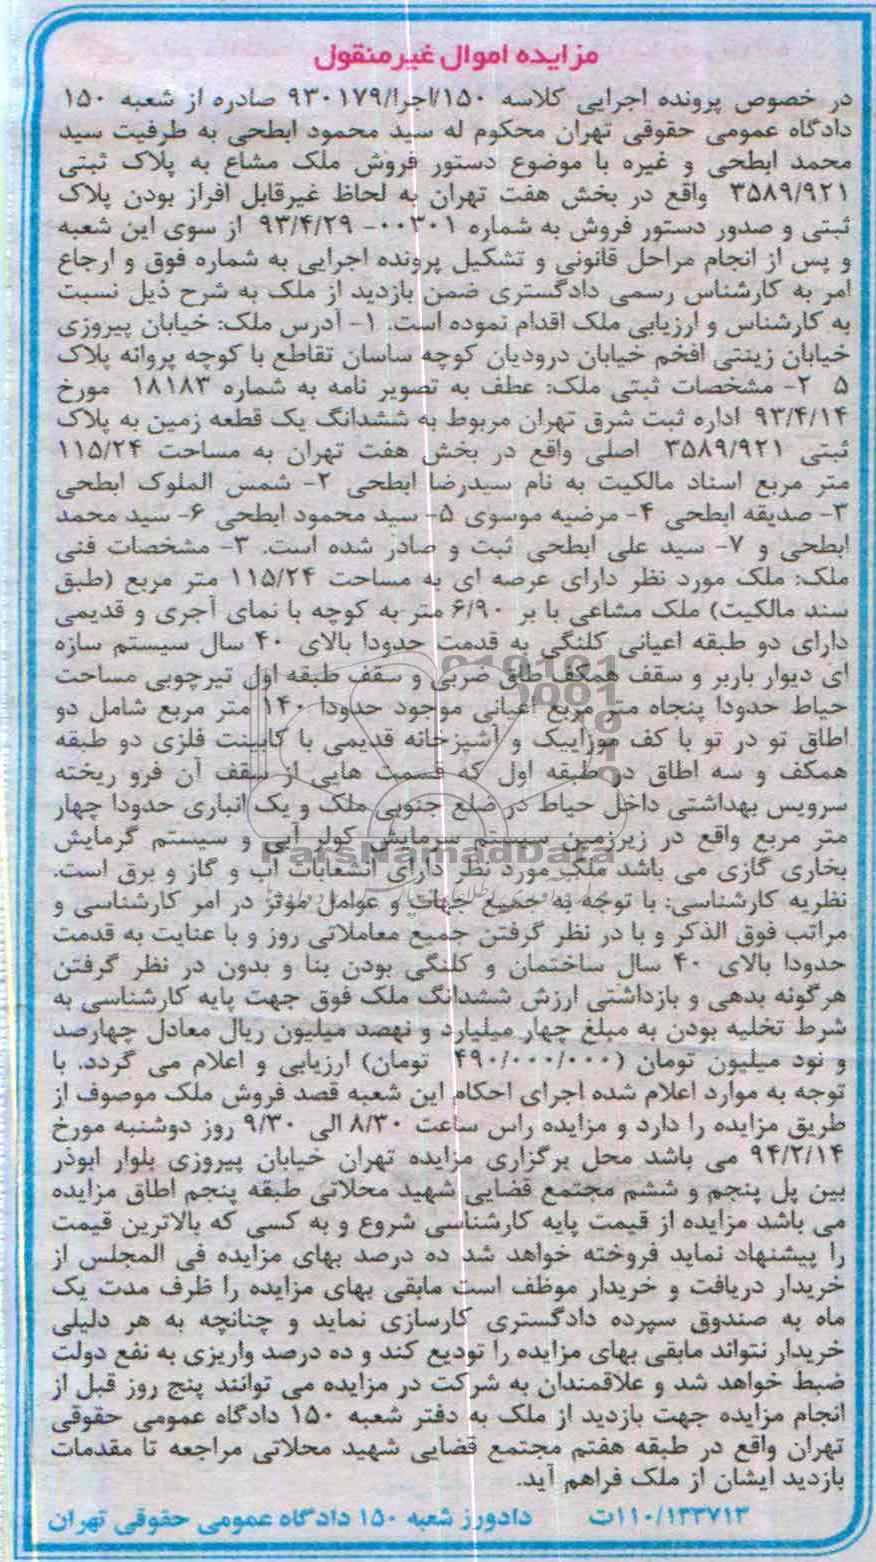 مزایده اموال غیرمنقول
در خصوص پرونده اجرایی کلاسه ۱۵۰/اجرا/۹۳۰۱۷۹ صادره از شعبه ۱۵۰
دادگاه عمومی حقوقی تهران محکوم له سید محمود ابطحی به طرفیت سید
محمد ابطحی و غیره با موضوع دستور فروش ملک مشاع به پلاک ثبتی
۳۵۸۹/۹۲۱ واقع در بخش هفت تهران به لحاظ غیرقابل افراز بودن پلاک
ثبتی و صدور دستور فروش به شماره ۰۰۳۰۱- ۹۳/۴/۲۹ از سوی این شعبه
و پس از انجام مراحل قانونی و تشکیل پرونده اجرایی به شماره فوق و ارجاع
امر به کارشناس رسمی دادگستری ضمن بازدید از ملک به شرح ذیل نسبت
به کارشناس و ارزیابی ملک اقدام نموده است. ۱- آدرس ملک: خیابان پیروزی
خیابان زینتی افخم خیابان درودیان کوچه ساسان تقاطع با کوچه پروانه پلاک
۵ ۲- مشخصات ثبتی ملک: عطف به تصویر نامه به شماره ۱۸۱۸۳ مورخ
۹۳/۴/۱۴ اداره ثبت شرق تهران مربوط به ششدانگ یک قطعه زمین به پلاک
ثبتی ۳۵۸۹/۹۲۱ اصلی واقع در بخش هفت تهران به مساحت ۱۱۵/۲۴
متر مربع اسناد مالکیت به نام سیدرضا ابطحی ۲- شمس الملوک ابطحی
۳- صدیقه ابطحی ۴- مرضیه موسوی ۵- سید محمود ابطحی ۶- سید محمد
ابطحی و ۷- سید علی ابطحی ثبت و صادر شده است. ۳- مشخصات فنی
ملک: ملک مورد نظر دارای عرصه ای به مساحت ۱۱۵/۲۴ متر مربع (طبق
سند مالکیت) ملک مشاعی با بر ۶/۹۰ متر به کوچه با نمای آجری و قدیمی
دارای دو طبقه اعیانی کلنگی به قدمت حدودا بالای ۴۰ سال سیستم سازه
ای دیوار باربر و سقف همکف طاق ضربی و سقف طبقه اول تیرچوبی مساحت
حیاط حدودا پنجاه متر مربع اعیانی موجود حدودا ۱۴۰ متر مربع شامل دو
اطاق تو در تو با کف موزاییک و آشپزخانه قدیمی با کابینت فلزی دو طبقه
همکف و سه اطاق در طبقه اول که قسمت هایی از سقف آن فرو ریخته
سرویس بهداشتی داخل حیاط در ضلع جنوبی ملک و یک انباری حدودا چهار
متر مربع واقع در زیرزمین سیستم سرمایش کولر آبی و سیستم گرمایش
ParsNamadData
بخاری گازی می باشد ملک مورد نظر دارای انشعابات آب و گاز و برق است.
نظریه کارشناسی: با توجه به جمیع جهات و عوامل موثر در امر کارشناسی و
مراتب فوق الذکر و با در نظر گرفتن جمیع معاملاتی روز و با عنایت به قدمت
حدودا بالای ۴۰ سال ساختمان و کلنگی بودن بنا و بدون در نظر گرفتن
هرگونه بدهی و بازداشتی ارزش ششدانگ ملک فوق جهت پایه کارشناسی به
شرط تخلیه بودن به مبلغ چهار میلیارد و نهصد میلیون ریال معادل چهارصد
و نود میلیون تومان (۴۹۰/۰۰۰/۰۰۰ تومان) ارزیابی و اعلام می گردد. با
توجه به موارد اعلام شده اجرای احکام این شعبه قصد فروش ملک موصوف از
طریق مزایده را دارد و مزایده راس ساعت ۸/۳۰ الی ۹/۳۰ روز دوشنبه مورخ
۹۴/۲/۱۴ می باشد محل برگزاری مزایده تهران خیابان پیروزی بلوار ابوذر
بین پل پنجم و ششم مجتمع قضایی شهید محلاتی طبقه پنجم اطاق مزایده
می باشد مزایده از قیمت پایه کارشناسی شروع و به کسی که بالاترین قیمت
را پیشنهاد نماید فروخته خواهد شد ده درصد بهای مزایده فی المجلس از
خریدار دریافت و خریدار موظف است مابقی بهای مزایده را ظرف مدت یک
ماه به صندوق سپرده دادگستری کارسازی نماید و چنانچه به هر دلیلی
خریدار نتواند مابقی بهای مزایده را تودیع کند و ده درصد واریزی به نفع دولت
ضبط خواهد شد و علاقمندان به شرکت در مزایده می توانند پنج روز قبل از
انجام مزایده جهت بازدید از ملک به دفتر شعبه ۱۵۰ دادگاه عمومی حقوقی
تهران واقع در طبقه هفتم مجتمع قضایی شهید محلاتی مراجعه تا مقدمات
بازدید ایشان از ملک فراهم آید.
۱۱۰/۱۳۳۷۱۳ت دادورز شعبه ۱۵۰ دادگاه عمومی حقوقی تهران